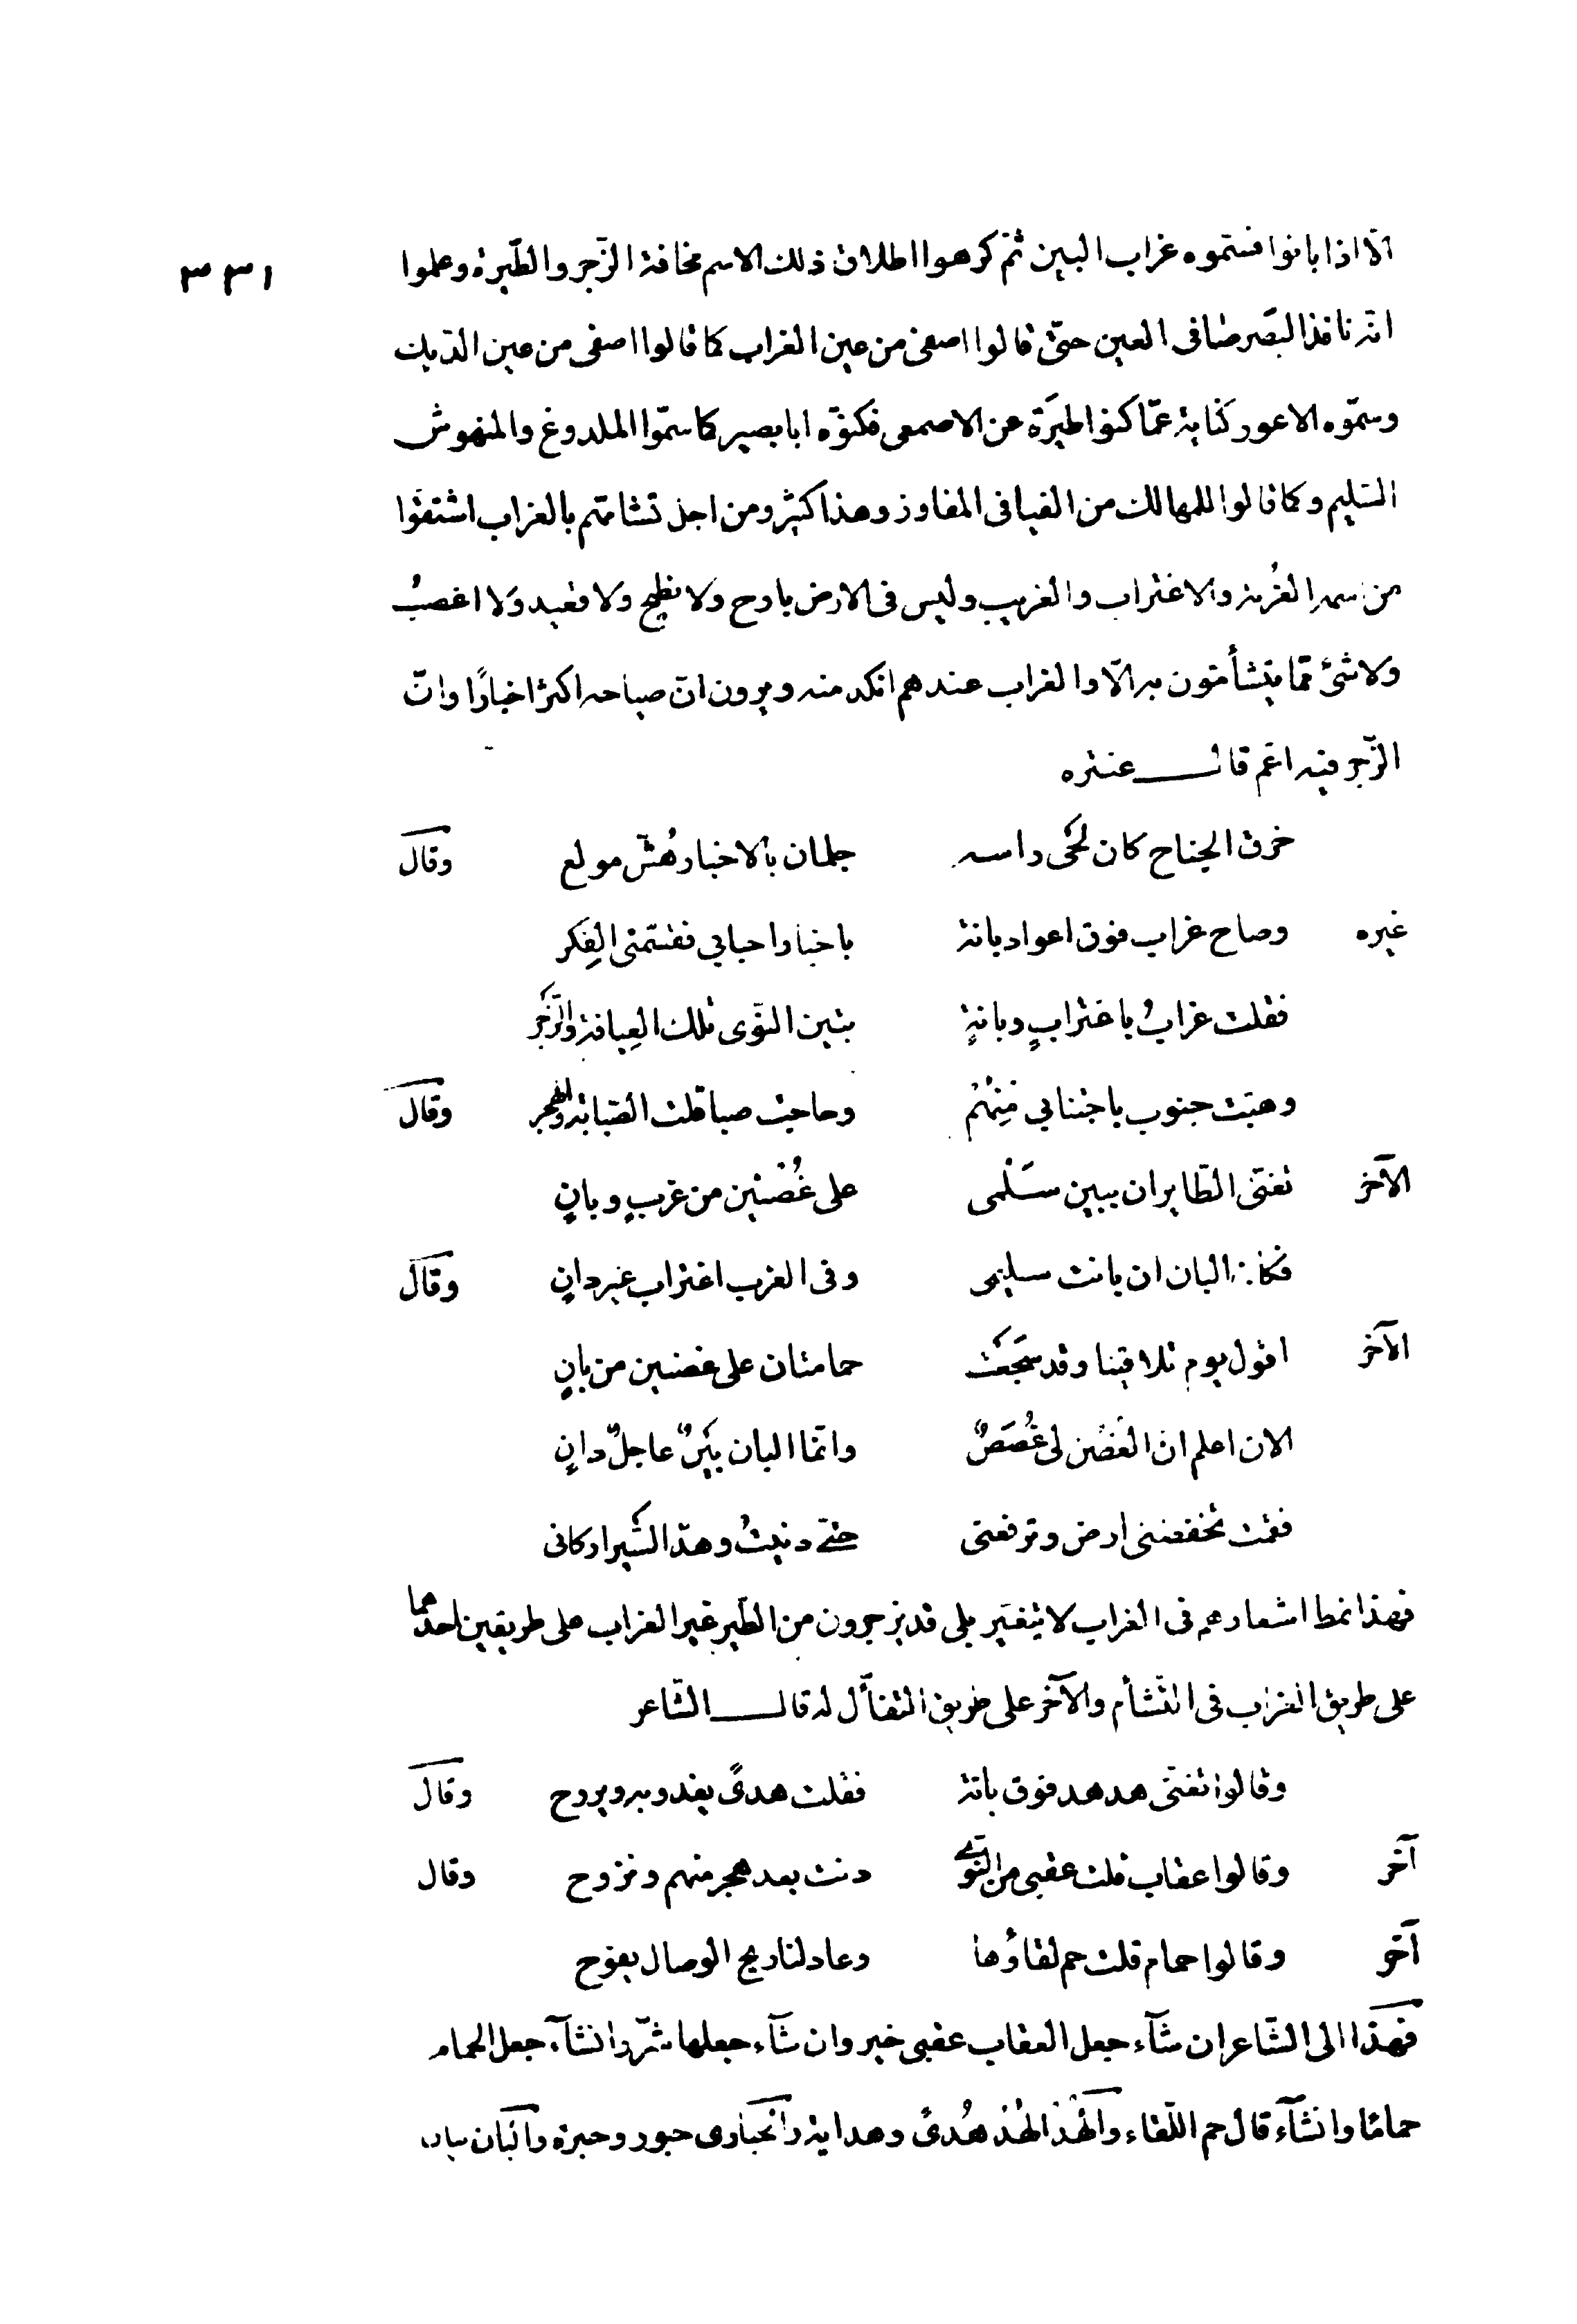 الّا اذا بانوا فسمّوه غراب البين ثمّ كرهوا اطلاق ذلك الاسم مخافة الزّجر والطّيرة وعلموا
٣٣١
انّه نافذ البصر صافى العين حتّى قالوا اصفى من عين الغراب كما قالوا اصفى من عين الدّيك
وسمّوه الاعور كناية عمّا كنوا طيرَة عن الاصمعى فكنوّه ابا بصير كما سمّوا الملدوغ والمنهوش
السّليم وكما قالوا للمهالك من الفيافى المفاوز وهذا كثير ومن اجل تشائمهم بالغراب اشتقوا
من اسمه الغُربة والاغتراب والغريب وليس فى الارض بارح ولا نطيح ولا قعيد ولا اعضبُ
ولا شئ ممّا يتشأمون به الّا والغراب عندهم انكد منه ويرون انّ صياحه اكثر اخبارًا وانّ
الزّجر فيه اعمّ قال عنتره
خرق الجناح كان لحَى راسه جلمان بالاخبار هُشّ مولع وقال
غيره وصاح غراب فوق اعواد بانة باخبار احبابي فقسّمنى الفِكر
فقلت غرابُ باغترابٍ وبانةٍ ببين النّوى تلك العِيافة والزّجَر
وهبّت جنوب باجتنابي مِنهُم وهاجت صبا قلت الصّبابة والهجر وقال
الآخر تغنّى الطّايران ببين سَلْمى على غُصْنين من غربٍ وبانٍ
فكان البان ان بانت سليمى وفى الغرب اغتراب غير دانٍ وقال
الآخر اقول يوم تلاقينا وقد سَجَعَت حمامتان على غصنين من بانٍ
الان اعلم ان الغصْن لى غُصَصٌ وانّما البان بَينٌ عاجلٌ دانٍ
فقمت تخفضنى ارض وترفعنى حتّى دنيتُ وهدّ السَّير اركانى
فهذا نمط اشعارهم فى الغراب لا يتغيّر بلى قد يزجرون من الطّير غير الغراب على طريقين احدهما
على طريق الغراب فى التّشأم والآخر على طريق التفأّل له قال الشّاعر
وقالوا تغنّى هدهد فوق بانة فقلت هدىً يغدو به ويروح وقال
آخر وقالوا عقاب قلت عقبى من النّوى دنت بعد هجر منهم ونزوح وقال
آخر وقالوا حمام قلت حم لقاؤُها وعاد لنا ريح الوصال يفوح
فهذا الى الشّاعر ان شآء جعل العقاب عقبى خير وان شآء جعلها شرّ وان شآء جعل الحمام
حمامًا وان شآء قال حم اللّقاء والهُدْ الهُدْ هُدىً وهداية والحبارى حبور وحبرة والبان بيان